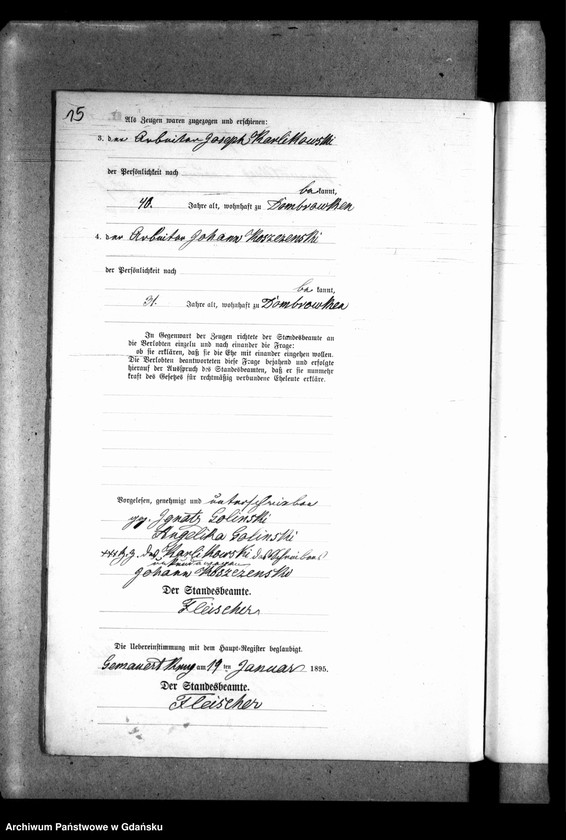 15
Als Zeugen waren zugezogen und erschienen:
3. der Arbeiter Joseph Karlikowski
der Persönlichkeit nach
be kannt,
40. Jahre alt, wohnhaft zu Dombrowken
4. der Arbeiter Johann Koszezenski
der Persönlichkeit nach
be kannt,
31. Jahre alt, wohnhaft zu Dombrowken
In Gegenwart der Zeugen richtete der Standesbeamte an
die Verlobten einzeln und nach einander die Frage:
ob sie erklären, daß sie die Ehe mit einander eingehen wollen.
Die Verlobten beantworteten diese Frage bejahend und erfolgte
hierauf der Ausspruch des Standesbeamten, daß er sie nunmehr
kraft des Gesetzes für rechtmäßig verbundene Eheleute erkläre.
Vorgelesen, genehmigt und unterschrieben
gez. Ignatz Golinski
Angelika Golinski
+++ H. Z. des Karlikowski des Schreibens
unkundig
Johann Koszezenski
Der Standesbeamte.
Fleischer
Die Uebereinstimmung mit dem Haupt-Register beglaubigt.
Gemauert Krug am 19 ten Januar 1895.
Der Standesbeamte.
Fleischer
Archiwum Państwowe w Gdańsku